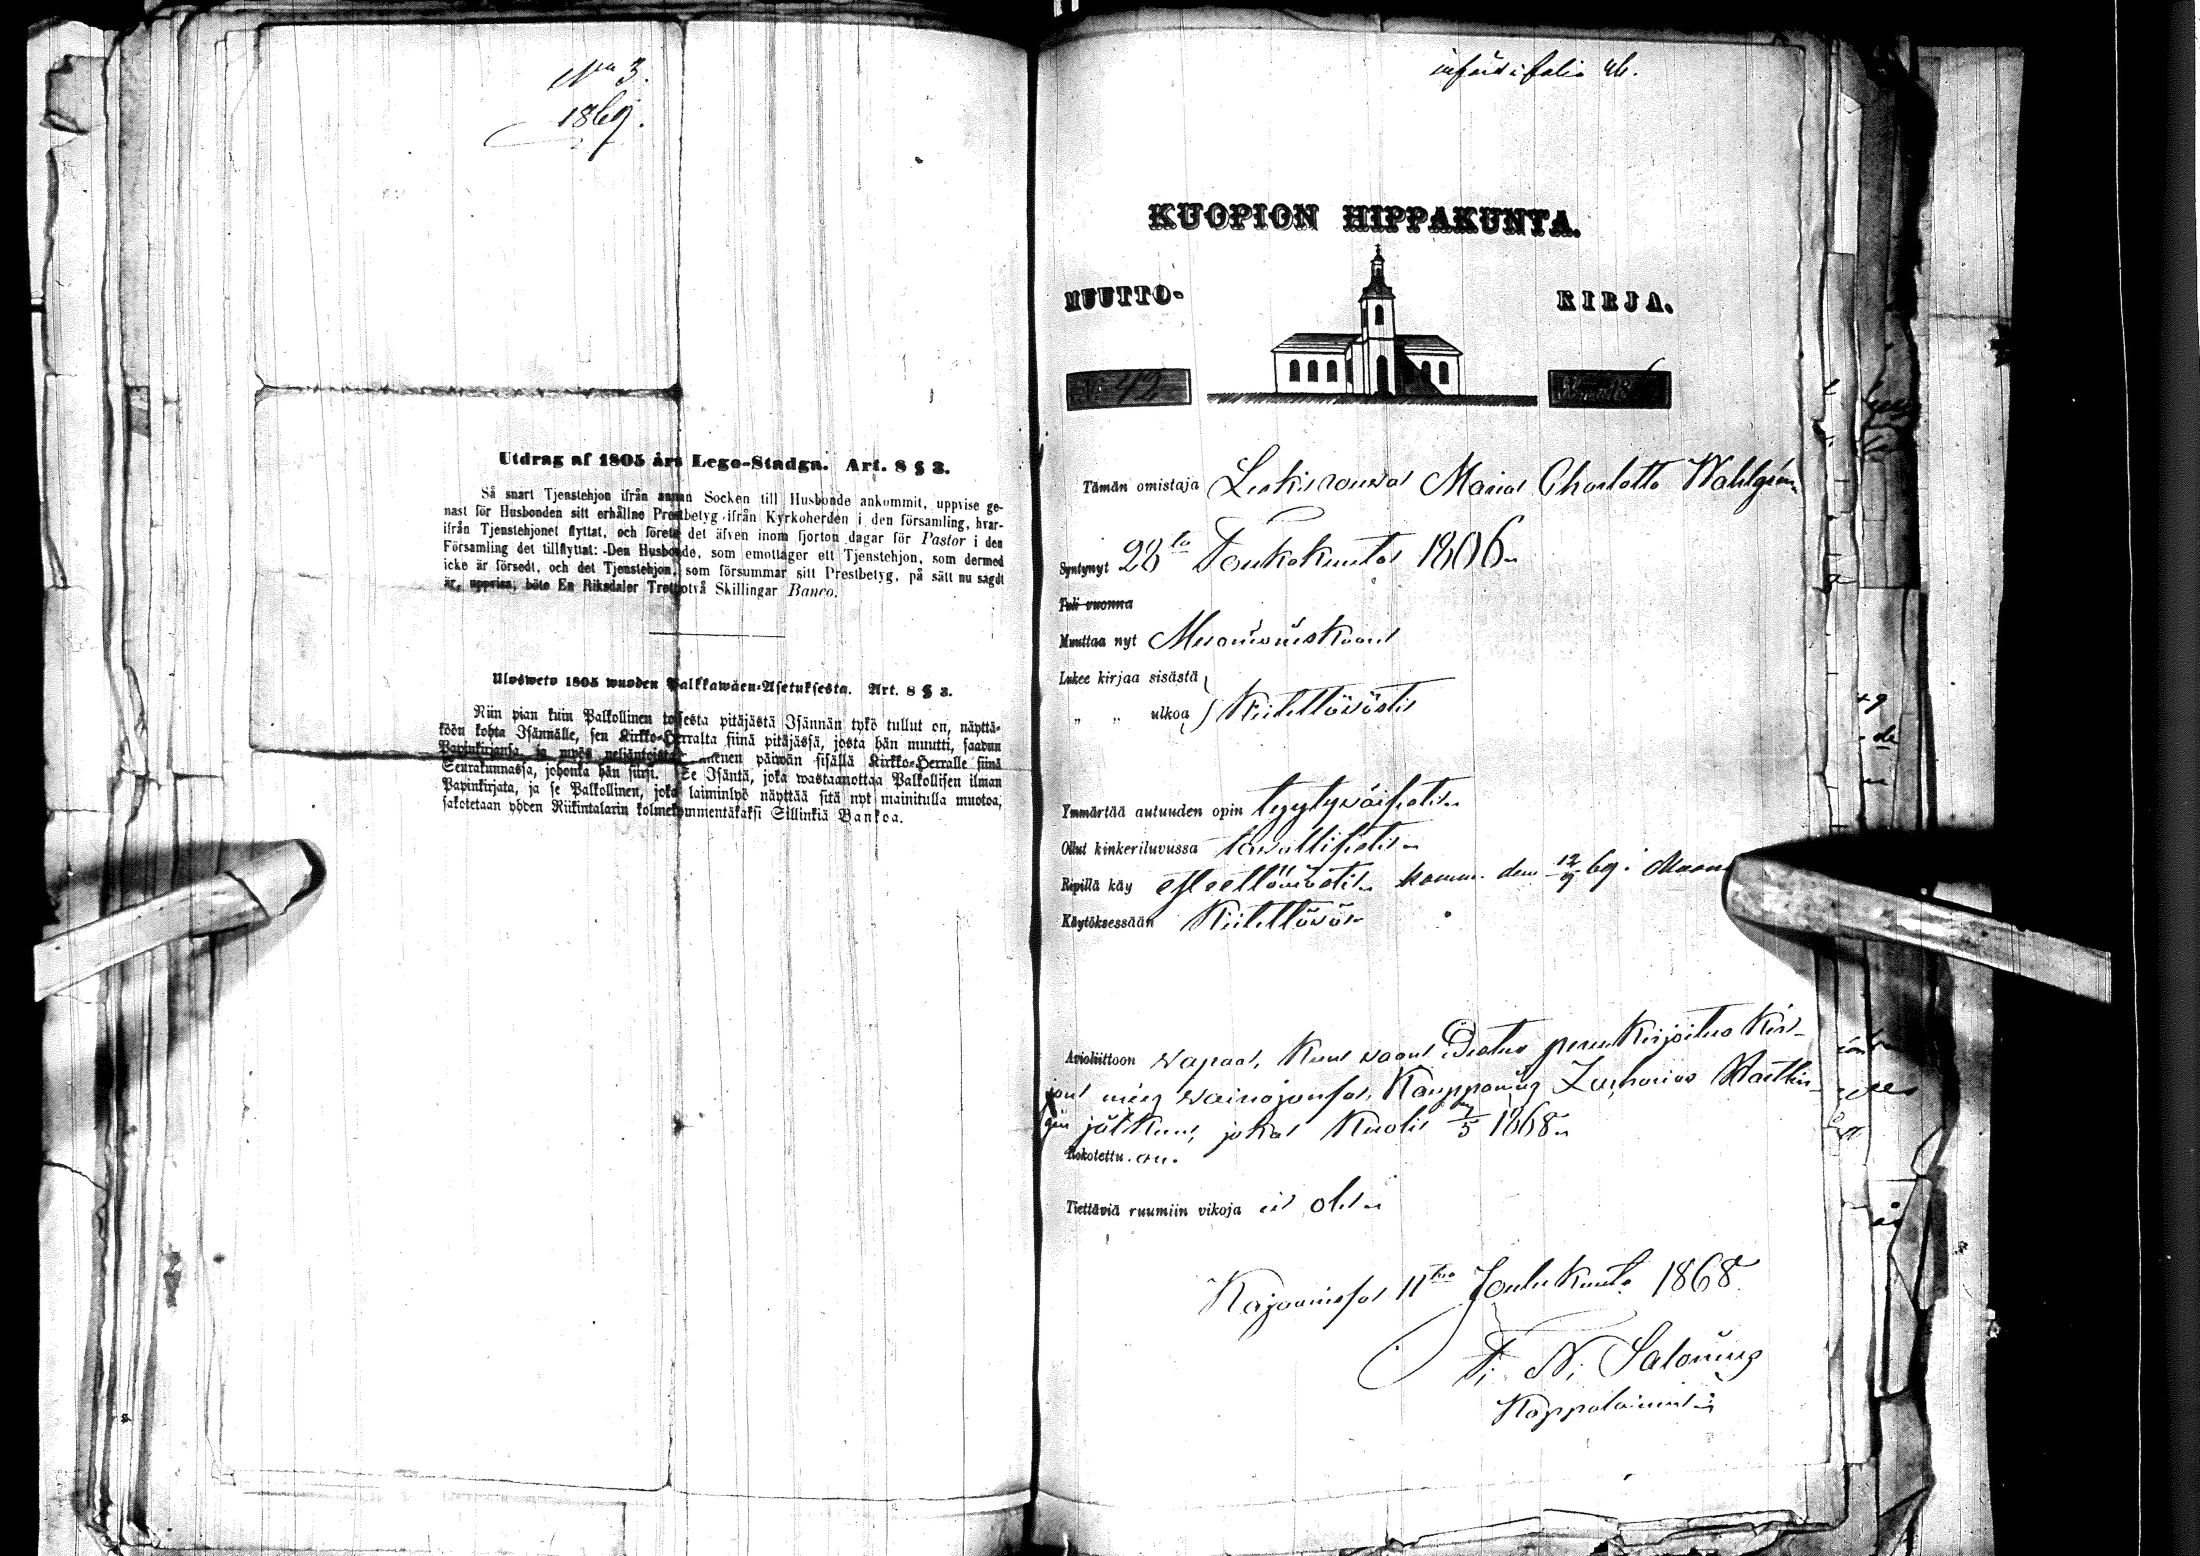 No 3.
1869.
Utdrag af 1805 års Lego-Stadga. Art. 8 § 3.
Så snart Tjenstehjon ifrån annan Socken till Husbonde ankommit, uppvise ge-
nast för Husbonden sitt erhållne Prestbetyg ifrån Kyrkoherden i den församling, hvar-
ifrån Tjenstehjonet flyttat, och förete det äfven inom fjorton dagar för Pastor i den
Församling det tillflyttat: Den Husbonde, som emottager ett Tjenstehjon, som dermed
icke är försedt, och det Tjenstehjon, som försummar sitt Prestbetyg, på sätt nu sagdt
är, uppvisa, böte En Riksdaler Trettiotvå Skillingar Banco.
Ulosweto 1805 wuoden Palkkawäen-Asetuksesta. Art. 8 § 3.
Niin pian kuin Palkollinen toisesta pitäjästä Isännän tykö tullut on, näyttä-
köön kohta Isännälle, sen Kirkko-Herralta siinä pitäjässä, josta hän muutti, saadun
Papinkirjansa, ja myös neljäntoista päiwän sisällä Kirkko-Herralle siinä
Seurakunnassa, johonka hän siirsi. Se Isäntä, joka wastaanottaa Palkollisen ilman
Papinkirjata, ja se Palkollinen, joka laiminlyö näyttää sitä nyt mainitulla muotoa,
sakotetaan yhden Riikintalarin kolmekymmentäkaksi Sillinkiä Bankoa.
införd i folio 46.
KUOPION HIPPAKUNTA.
MUUTTO- KIRJA.
42
Tämän omistaja Leskirouwa Maria Charlotta Wahlgrén
Syntynyt 28ta Toukokuuta 1806
Tuli vuonna
Muuttaa nyt Muonioniskaan
Lukee kirjaa sisästä
" " ulkoa } Kiitettäwästi
Ymmärtää autuuden opin tyytywäisesti
Ollut kinkeriluvussa tawallisesti
Ripillä käy esteettömästi komm. den 12/9 69 i Muon
Käytöksessään Kiitettäwä
Avioliittoon wapaa, kun waan Osotus perukirjoitus kir-
jan miesvainajansa, Kauppamies Zacharias
jälkeen, joka kuoli 1868
Rokotettu on.
Tiettäviä ruumiin vikoja ei ole
Kajaanissa 11ta Joulukuuta 1868
F. N. Salonius
Kappalainen